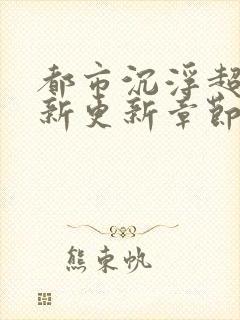 都市沉浮超
新更新章節
熊東帆